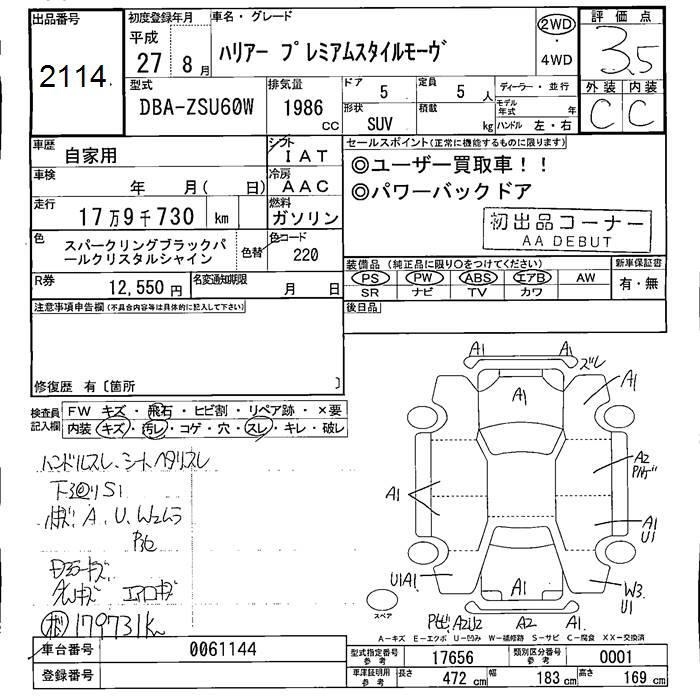 出品番号
2114
初度登録年月
平成
27 8 月
車名・グレード
ハリアー プレミアムスタイルモーヴ
2WD
・
4WD
評価点
3.5
外装 内装
C C
型式
DBA-ZSU60W
排気量
1986
CC
ドア
5
定員
5 人
形状
SUV
積載
kg
ディーラー・並行
モデル年式 年
ハンドル 左・右
車歴
自家用
シフト
IAT
車検
年 月( 日)
冷房
AAC
走行
17万9千730 km
燃料
ガソリン
色
スパークリングブラックパ
ールクリスタルシャイン
色替
色コード
220
R券
12,550 円
名変通知期限
月 日
セールスポイント(正常に機能するものに限ります)
◎ユーザー買取車!!
◎パワーバックドア
初出品コーナー
AA DEBUT
装備品 (純正品に限り○をつけてください)
新車保証書
PS PW ABS エアB AW
SR ナビ TV カワ
有・無
後日品
注意事項申告欄(不具合内容等は具体的に記入して下さい)
修復歴 有〔箇所 〕
検査員
記入欄
FW キズ・飛石・ヒビ割・リペア跡・×要
内装 キズ・汚レ・コゲ・穴・スレ・キレ・破レ
ハンドルスレ、シートヘタリスレ
下廻りS1
A、U、W2ムラ
ドアミラーキズ
エアロキズ
179731km
A1 A1
ズレ
A1
A1
A2
A1
A1
U1
U1A1
A1
W3
U1
A2U2 A2 A1
スペア
A-キズ E-エクボ U-凹み W-補修跡 S-サビ C-腐食 XX-交換済
車台番号
0061144
登録番号
型式指定番号
参考
17656
類別区分番号
参考
0001
車庫証明用
参考
長さ 472 cm 幅 183 cm 高さ 169 cm